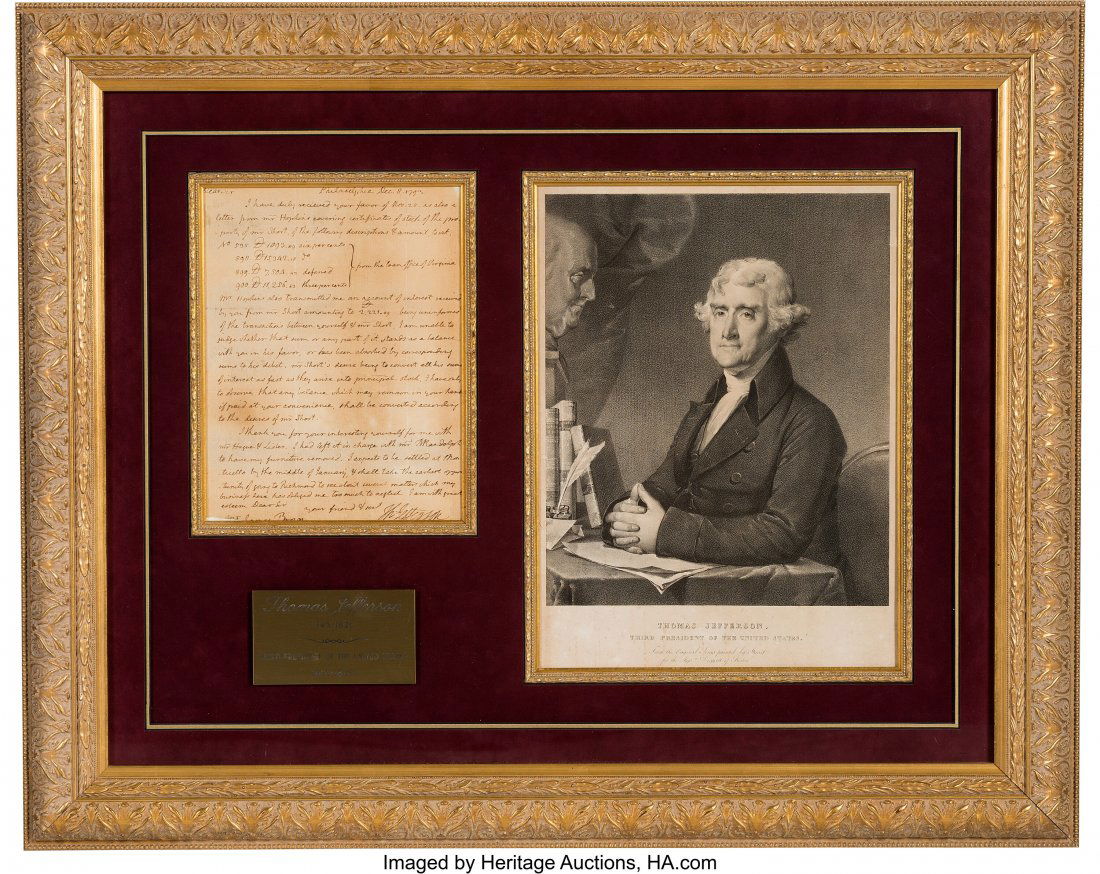 Dear Sir Philadelphia Dec. 8. 1792
I have duly recieved your favor of Nov. 28. as also a
letter from mr Hopkins covering certificates of stock of the pro
perty of mr Short, of the following descriptions & amount to wit,
No 595. 1893. sixpercents
598. 15342. do
899. 7,508. deferred
900. 11,256. threepercents
from the loan office of Virginia
Mr. Hopkins also transmitted me an account of interest recieved
by you from mr Short amounting to being uninformed
of the transactions between yourself & mr Short, I am unable to
judge whether that sum or any part of it stands as a balance
with you in his favor, or has been absorbed by corresponding
sums to his debet. mr Short's desire being to convert all his sums
of interest as fast as they arise into principal stock, I have only
to observe that any balance which may remain in your hands
if paid at your convenience shall be converted according
to the desires of mr Short.
I thank you for your interesting yourself for me with
mr Hague & Lester. I had left it in charge with mr
to have my furniture removed. I expect to be settled at Mon
ticello by the middle of January, & shall take the earliest oppor
tunity of going to Richmond to see about several matters which my
business here has obliged me too much to neglect. I am with great
esteem Dear Sir your friend & servt
Th: Jefferson
mr James Brown
Thomas Jefferson
THOMAS JEFFERSON.
THIRD PRESIDENT OF THE UNITED STATES.
Imaged by Heritage Auctions, HA.com